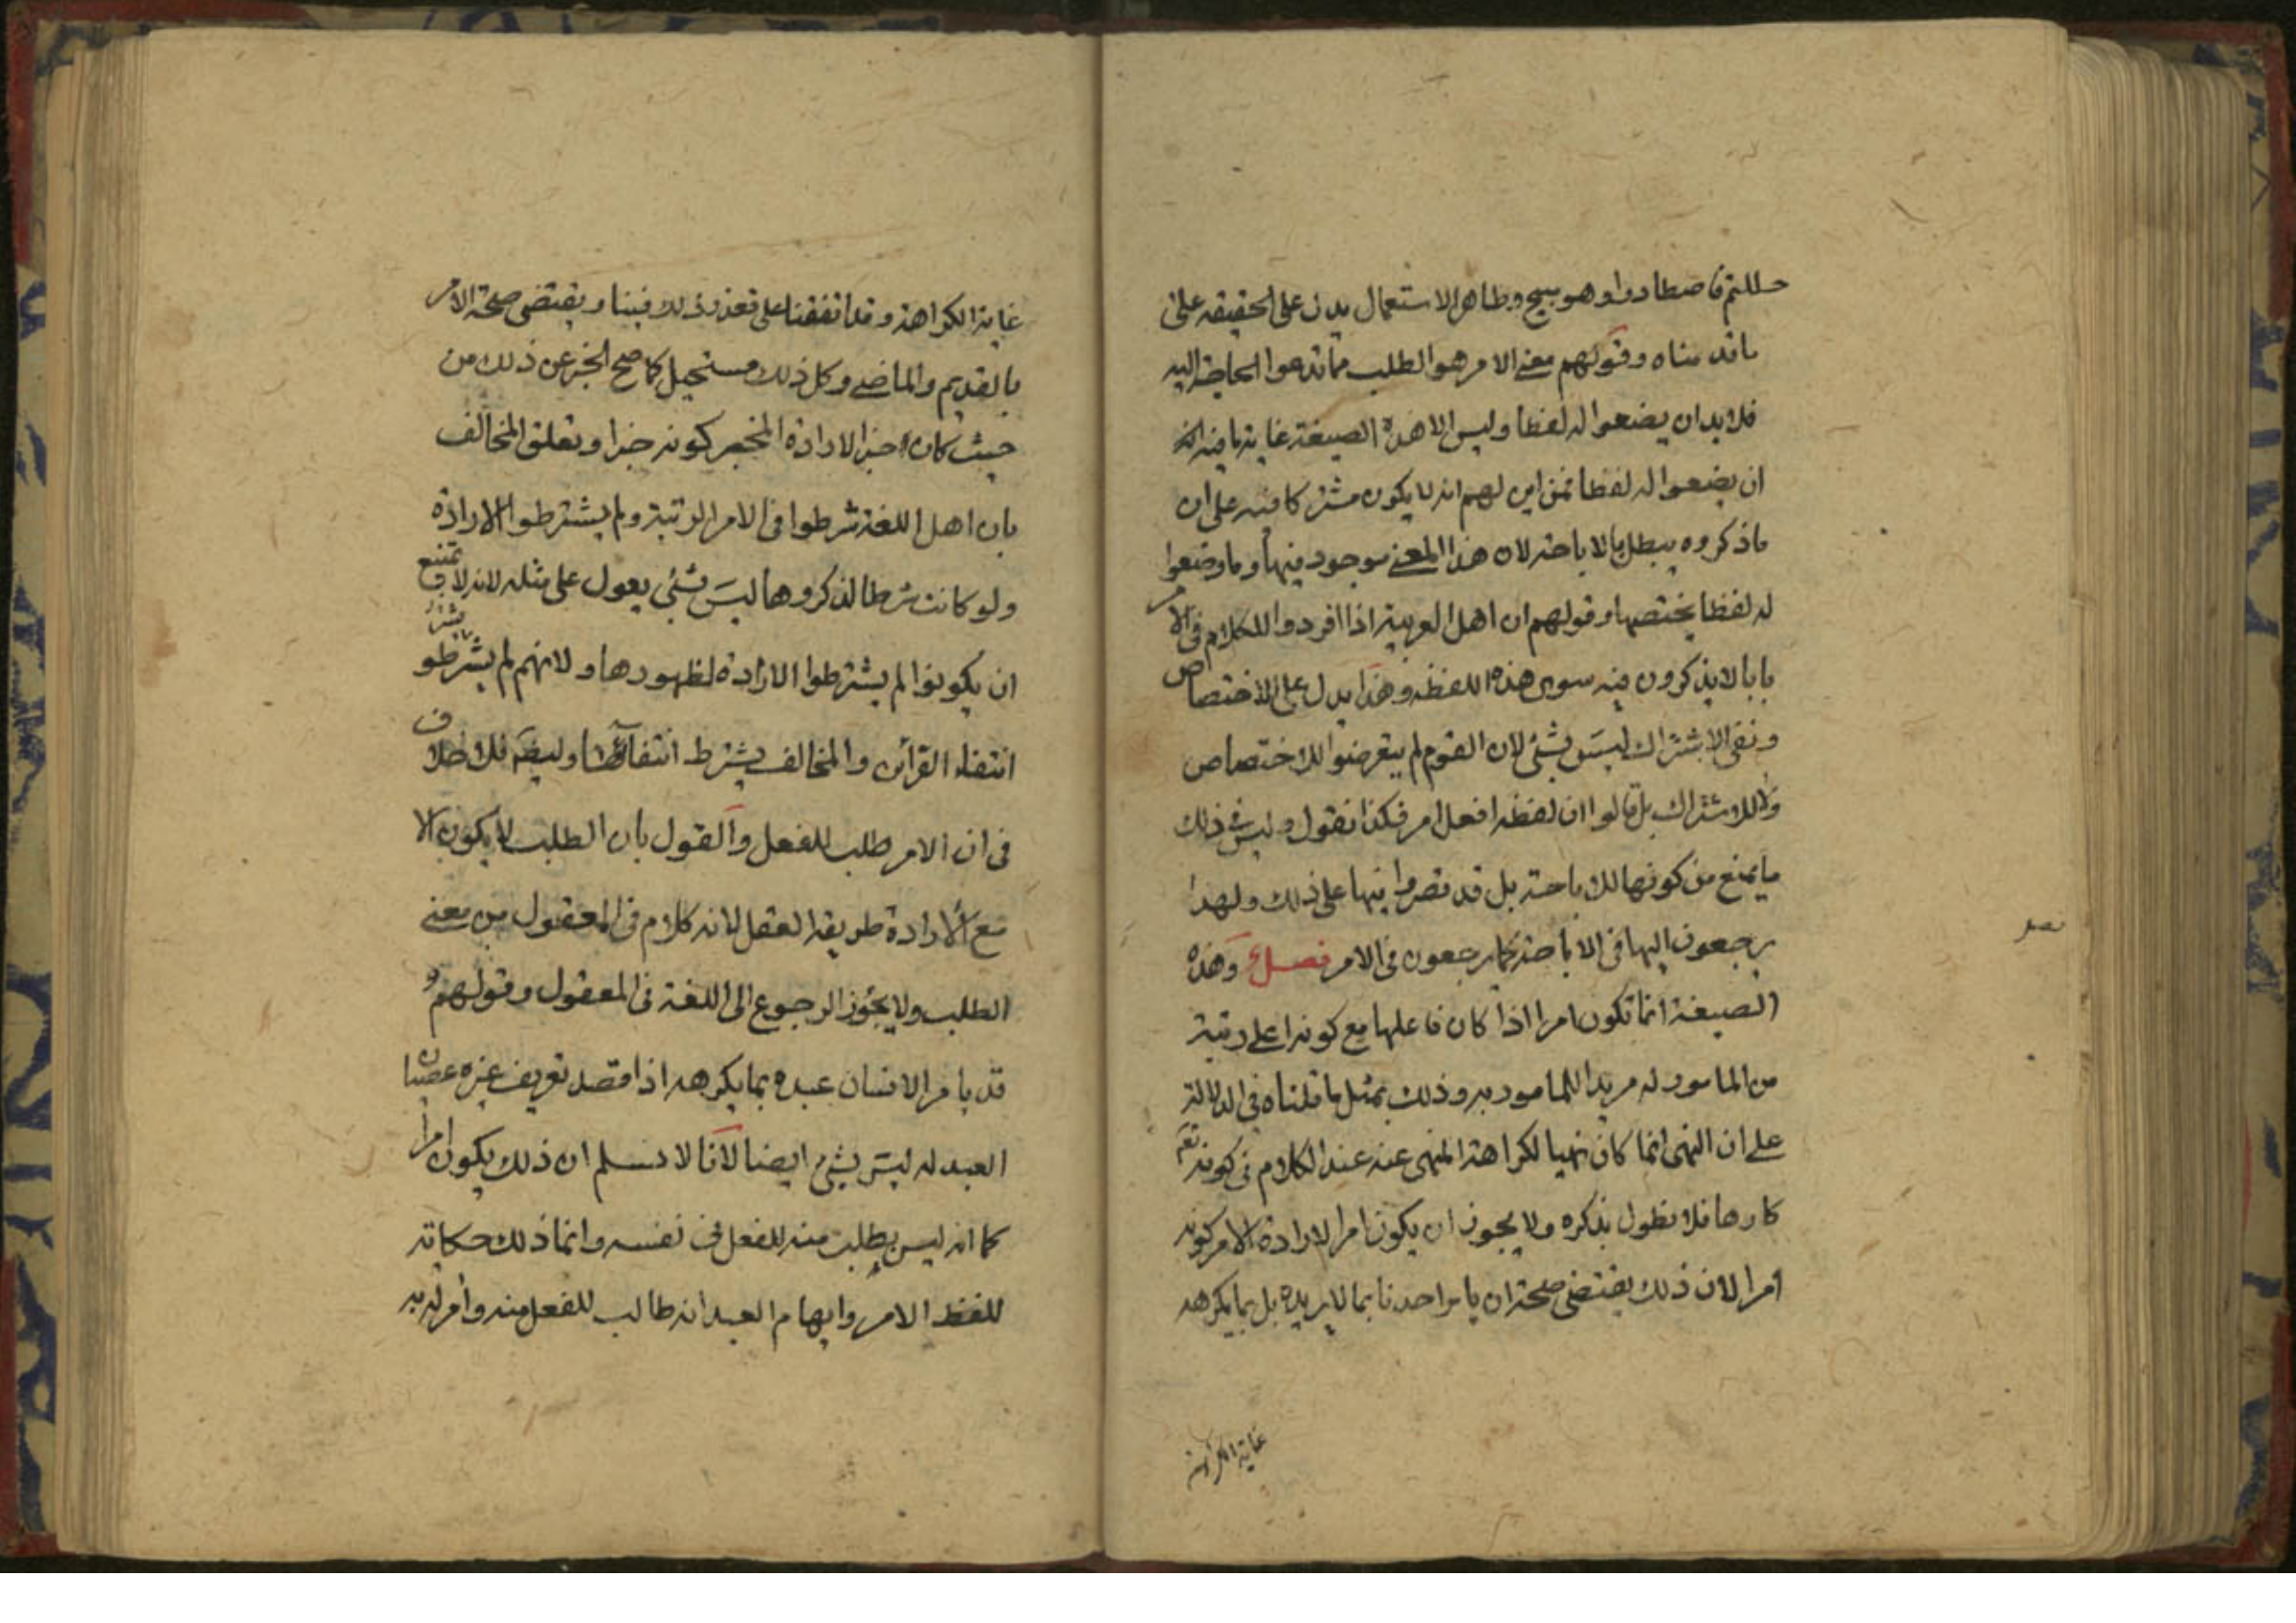 حللتم فاصطادوا وهو مبيح وظاهر الاستعمال يدل على الحقيقة على
ما قدمناه وقولهم معنى الامر هو الطلب مما تدعوا الحاجة اليه
فلا بد ان يضعوا له لفظا وليس الا هذه الصيغة غاية ما فيه انه
ان يضعوا له لفظا فمن اين لهم انه لا يكون مشتركا فيه على ان
ما ذكروه يبطل بالاباحة لان هذا المعنى موجود فيها وما وضعوا
له لفظا يختصها وقولهم ان اهل العربية اذا افردوا للكلام في الامر
بابا لا يذكرون فيه سوى هذه اللفظة وهذا يدل على الاختصاص
ونفى الاشتراك ليس بشئ لان القوم لم يتعرضوا للاختصاص
ولا للاشتراك بل قالوا ان لفظة افعل امر فكذا نقول وليس في ذلك
ما يمنع من كونها للاباحة بل قد نصوا فيها على ذلك ولهذا
يرجعون اليها في الاباحة كما يرجعون في الامر فصل وهذه
الصيغة انما تكون امرا اذا كان فاعلها مع كونه اعلى رتبة
من المامور له مريدا للمامور به وذلك بمثل ما قلناه في الدلالة
على ان النهى انما كان نهيا لكراهة المنهى عنه عند الكلام في كونه تعم
كارها فلا نطول بذكره ولا يجوز ان يكون امرا لارادة الامر كونه
امرا لان ذلك يقتضى صحة ان يامر احدنا بما لا يريده بل بما يكرهه
غاية الكراهة
فصل
غاية الكراهة وقد اتفقنا على تعذر ذلك فينا ويقتضى صحة الامر
بالقديم والماضى وكل ذلك مستحيل كما صح الخبر عن ذلك من
حيث كان خبرا لارادة المخبر كونه خبرا وتعلق المخالف
بان اهل اللغة شرطوا في الامر الرتبة ولم يشترطوا الارادة
ولو كانت شرطا لذكروها ليس بشئ يعول على مثله لانه لا يمتنع
ان يكونوا لم يشترطوا الارادة لظهورها ولانهم لم يشترطو
انتفاء القرائن والمخالف يشترط انتفائها وايضا فلا خلاف
في ان الامر طلب للفعل والقول بان الطلب لا يكون الا
مع الارادة طريقه العقل لانه كلام في المعقول من معنى
الطلب ولا يجوز الرجوع الى اللغة في المعقول وقولهم
قد يامر الانسان عبده بما يكرهه اذا قصد تعريف غيره عصيان
العبد له ليس بشئ ايضا لانا لا نسلم ان ذلك يكون امرا
كما انه ليس بطلب منه للفعل في نفسه وانما ذلك حكاية
للفظ الامر وايهام العبد انه طالب للفعل منه وآمر له به